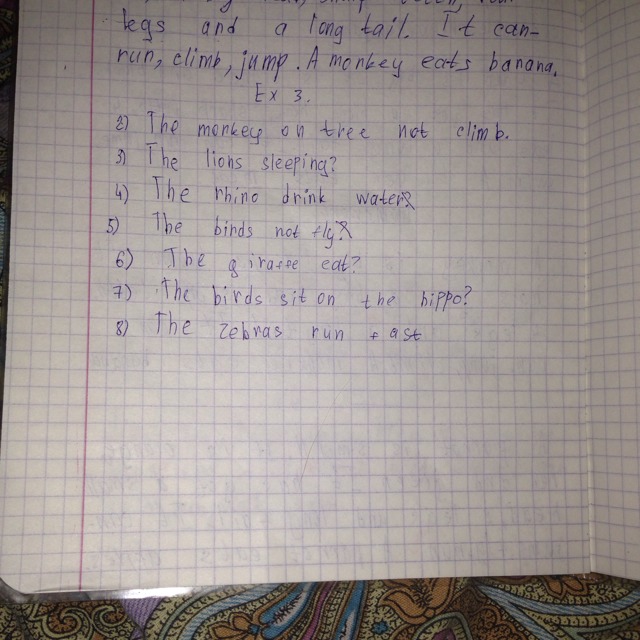 legs and a long tail. It can-
run, climb, jump. A monkey eats banana.
Ex 3.
2) The monkey on tree not climb.
3) The lions sleeping?
4) The rhino drink water?
5) The birds not fly?
6) The giraffe eat?
7) The birds sit on the hippo?
8) The zebras run fast